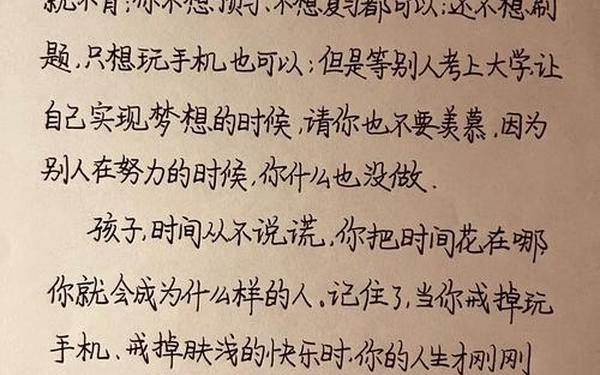 就不背；你不想预习、不想复习都可以；还不想刷
题，只想玩手机也可以；但是等别人考上大学，让
自己实现梦想的时候，请你也不要羡慕，因为
别人在努力的时候，你什么也没做．
孩子，时间从不说谎，你把时间花在哪，
你就会成为什么样的人。记住了，当你戒掉玩
手机、戒掉肤浅的快乐时，你的人生才刚刚